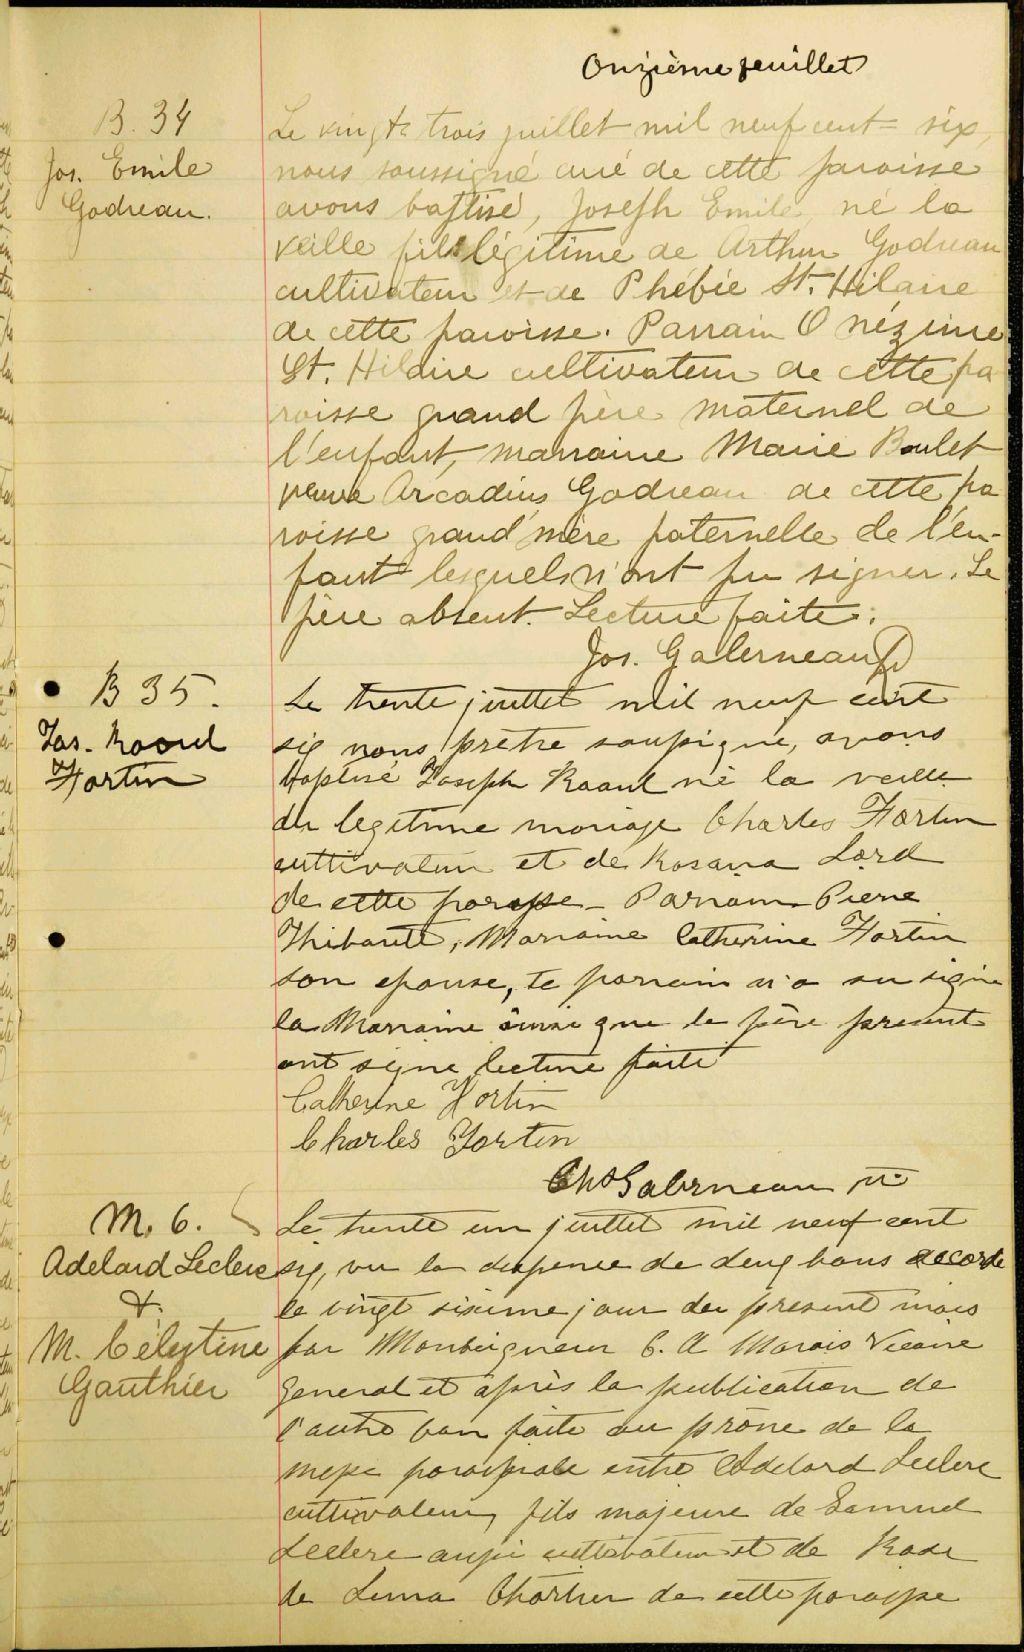 Onzième feuillet
B. 34
Jos. Emile
Godreau.
Le vingt trois juillet mil neuf cent six,
nous soussigné curé de cette paroisse
avons baptisé, Joseph Emile, né la
veille fils légitime de Arthur Godreau
cultivateur et de Phébie St. Hilaire
de cette paroisse. Parrain Onézime
St. Hilaire cultivateur de cette pa
roisse grand père maternel de
l'enfant, marraine Marie Boulet
veuve Arcadius Godreau de cette pa
roisse grand'mère paternelle de l'en-
fant lesquels n'ont pu signer. Le
père absent. Lecture faite.
Jos. Galerneau
B 35.
Jos. Raoul
Fortin
Le trente juillet mil neuf cent
six nous prêtre soussigné, avons
baptisé Joseph Raoul né la veille
du legitime mariage Charles Fortin
cultivateur et de Rosana Lord
de cette paroisse - Parrain Pierre
Thibault, Marraine Catherine Fortin
son epouse, le parrain n'a su signe
la Marraine ainsi que le père present
ont signe lecture faite
Catherine Fortin
Charles Fortin
Chs Galerneau ptr
M. 6.
Adelard Leclerc
&.
M. Célestine
Gauthier
Le trente un juillet mil neuf cent
six, vu la dispense de deux bans accorde
le vingt sixieme jour du present mois
par Monseigneur C. A Marois Vicaire
General et après la publication de
l'autre ban faite au prône de la
messe paroissiale entre Adelard Leclerc
cultivateur, fils majeure de Samuel
Leclerc aussi cultivateur et de Rose
de Lima Chartier de cette paroisse